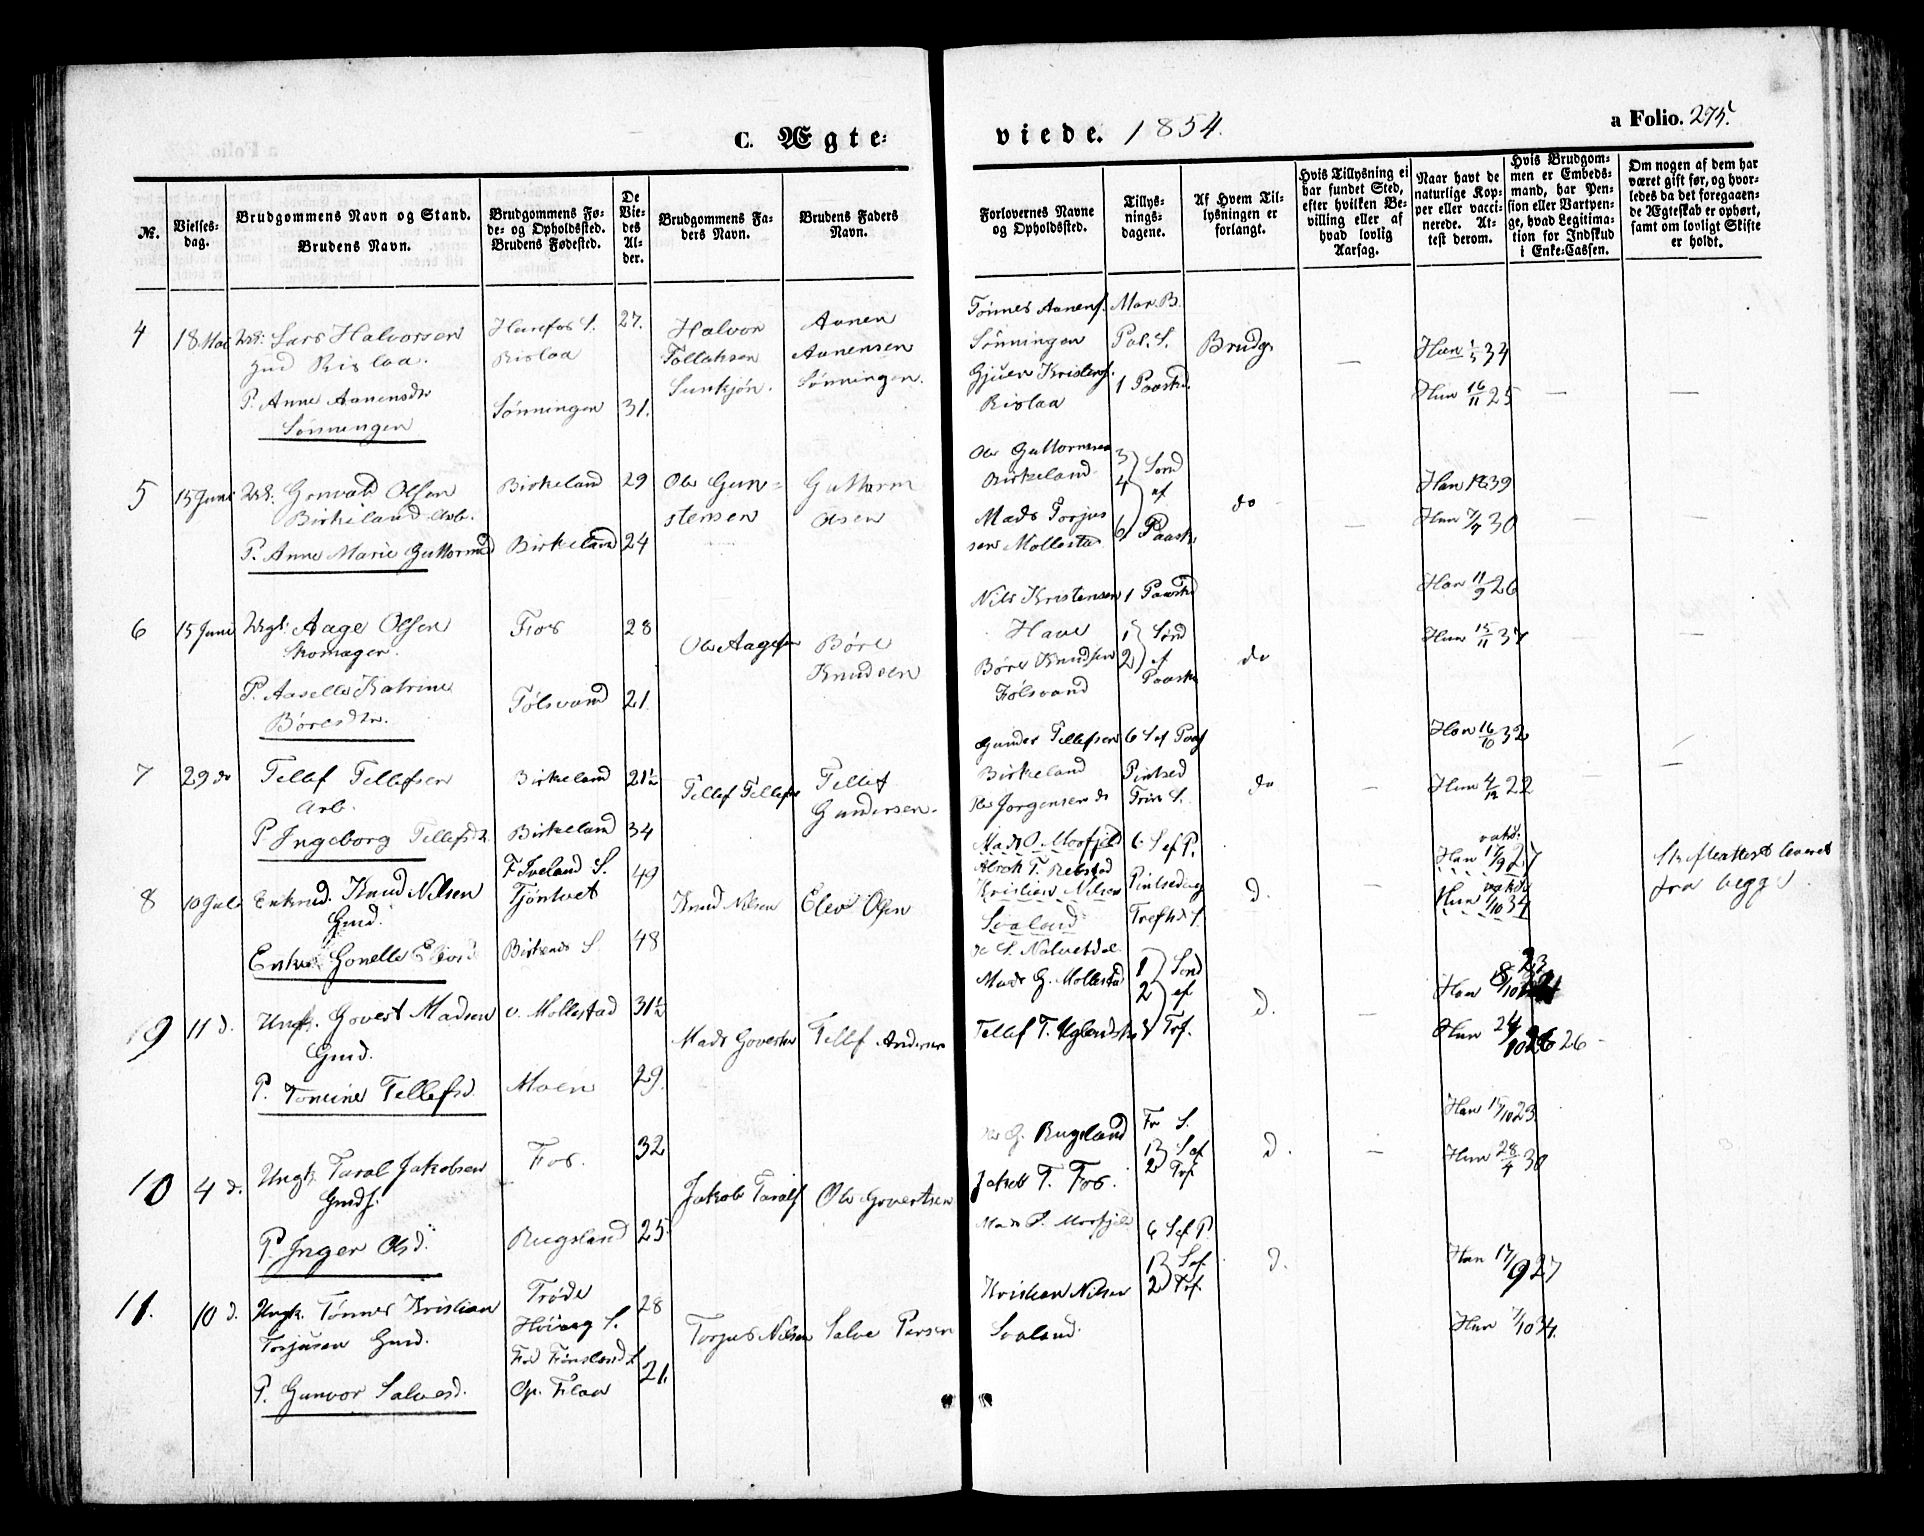 C. Ægte=
viede. 1854.
a Folio. 275.
No.
Vielses-
dag.
Brudgommens Navn og Stand.
Brudens Navn.
Brudgommens Fø-
de- og Opholdssted.
Brudens Fødested.
De
Vie-
des
Al-
der.
Brudgommens Fa-
ders Navn.
Brudens Faders
Navn.
Forlovernes Navne
og Opholdssted.
Tillys-
nings-
dagene.
Af Hvem Til-
lysningen er
forlangt.
Hvis Tillysning ei
har fundet Sted,
efter hvilken Be-
villing eller af
hvad lovlig
Aarsag.
Naar havt de
naturlige Kop-
per eller vacci-
nerede. At-
test derom.
Hvis Brudgom-
men er Embeds-
mand, har Pen-
sion eller Vartpen-
ge, hvad Legitima-
tion for Indskud
i Enke-Cassen.
Om nogen af dem har
været gift før, og hvor-
ledes da det foregaaen-
de Ægteskab er ophørt,
samt om lovligt Skifte
er holdt.
4
18 Mai
Lars Halvorsen
Gmd Rislaa.
P. Anne Aanensdtr
Sønningen
Rislaa
Sønningen
27.
31.
Halvor
Aanen
Aanensen
Sønningen.
Tønnes Aanens.
Sønningen
Gjuer Kristens.
Rislaa
Mar. B.
Pal. S.
1 Paaskd.
Brudg.
—
Han 1/5 34
Hun 16/11 25
—
—
5
15 Juni
Olsen
Birkeland Arb.
P. Anne Marie Guttormsd
Birkeland
Birkeland
29
24
Ole Gun=
stensen
Guttorm
Olsen
Ole Guttormsen
Birkeland
Mads Torjus
sen Mollestad
3
4
6
Sønd
ef
Paaske
do
—
Han 1839
Hun 7/7 30
—
—
6
15 Juni
Aage Olsen
Skomager.
P. Aaselle Katrine
Børesdtr.
Fos
Følsvand
28
21.
Ole Aagesen
Børe
Knudsen
Nils Kristensen
Have
Børe Knudsen
Følsvand
1 Paaskd
1
2
Sønd
ef
Paaske
do
Han 11/9 26
Hun 15/11 37
—
7
29 do
Tellef Tellefsen
Arb.
P Ingeborg Tellefsdt
Birkeland
Birkeland
21½
34
Tellef Tellefsen
Tellef
Gundersen.
Gunder Tellefsen
Birkeland
Jørgensen do
6 S ef Paas
Pintsed
Trin S.
do
—
Han 16/10 32
Hun 4/12 22
—
—
8
10 Juli
Enkmd. Knud Nilsen
Gmd.
Enke Gonelle Elevsd
F Iveland S.
Tjøntvet
Birkenes S.
49
48
Knud Nilsen
Elev Olsen
Mads O. Mosfjeld
Kristian Nilsen
6 S ef P.
Pintsedag
Trefhd S.
d.
—
Han 17/9 27
Hun 7/10 34
Skifteattest leveret
fra begge.
9
11 d.
Ungk. Govert Madsen
Gmd.
P. Tomine Tellefsd.
v. Mollestad
Moen
31½
29.
Mads Govertsen
Tellef Andersen
Mads G. Mollestad
Tellef T. Uglandskil
1
2
Sønd
ef
Trf.
d.
—
Han 8/10 23
Hun 24/10 26 26 -
10
4 d.
Ungk. Taral Jakobsen
Gmds.
P. Inger Olsd.
Fos.
Rugsland
32
25.
Jakob Taralf
Ole Govertsen
G. Rugsland
Jakob T. Fos.
Fr S.
1
2
S ef
Trf.
d.
—
Han 15/10 23.
Hun 28/4 30
11.
10 d.
Ungk. Tønnes Kristian
Torjusen Gmd.
P. Gunvor Salvesd.
Trøde
Høivaag S.
Fød Tønsland S
Op. Flaa
28
21.
Torjus Nilsen
Salve Persen
Mads O. Mosfjeld
Kristian Nilsen
6 S ef P.
1
2
S ef
Trf.
d.
Han 17/9 27
Hun 7/10 34.